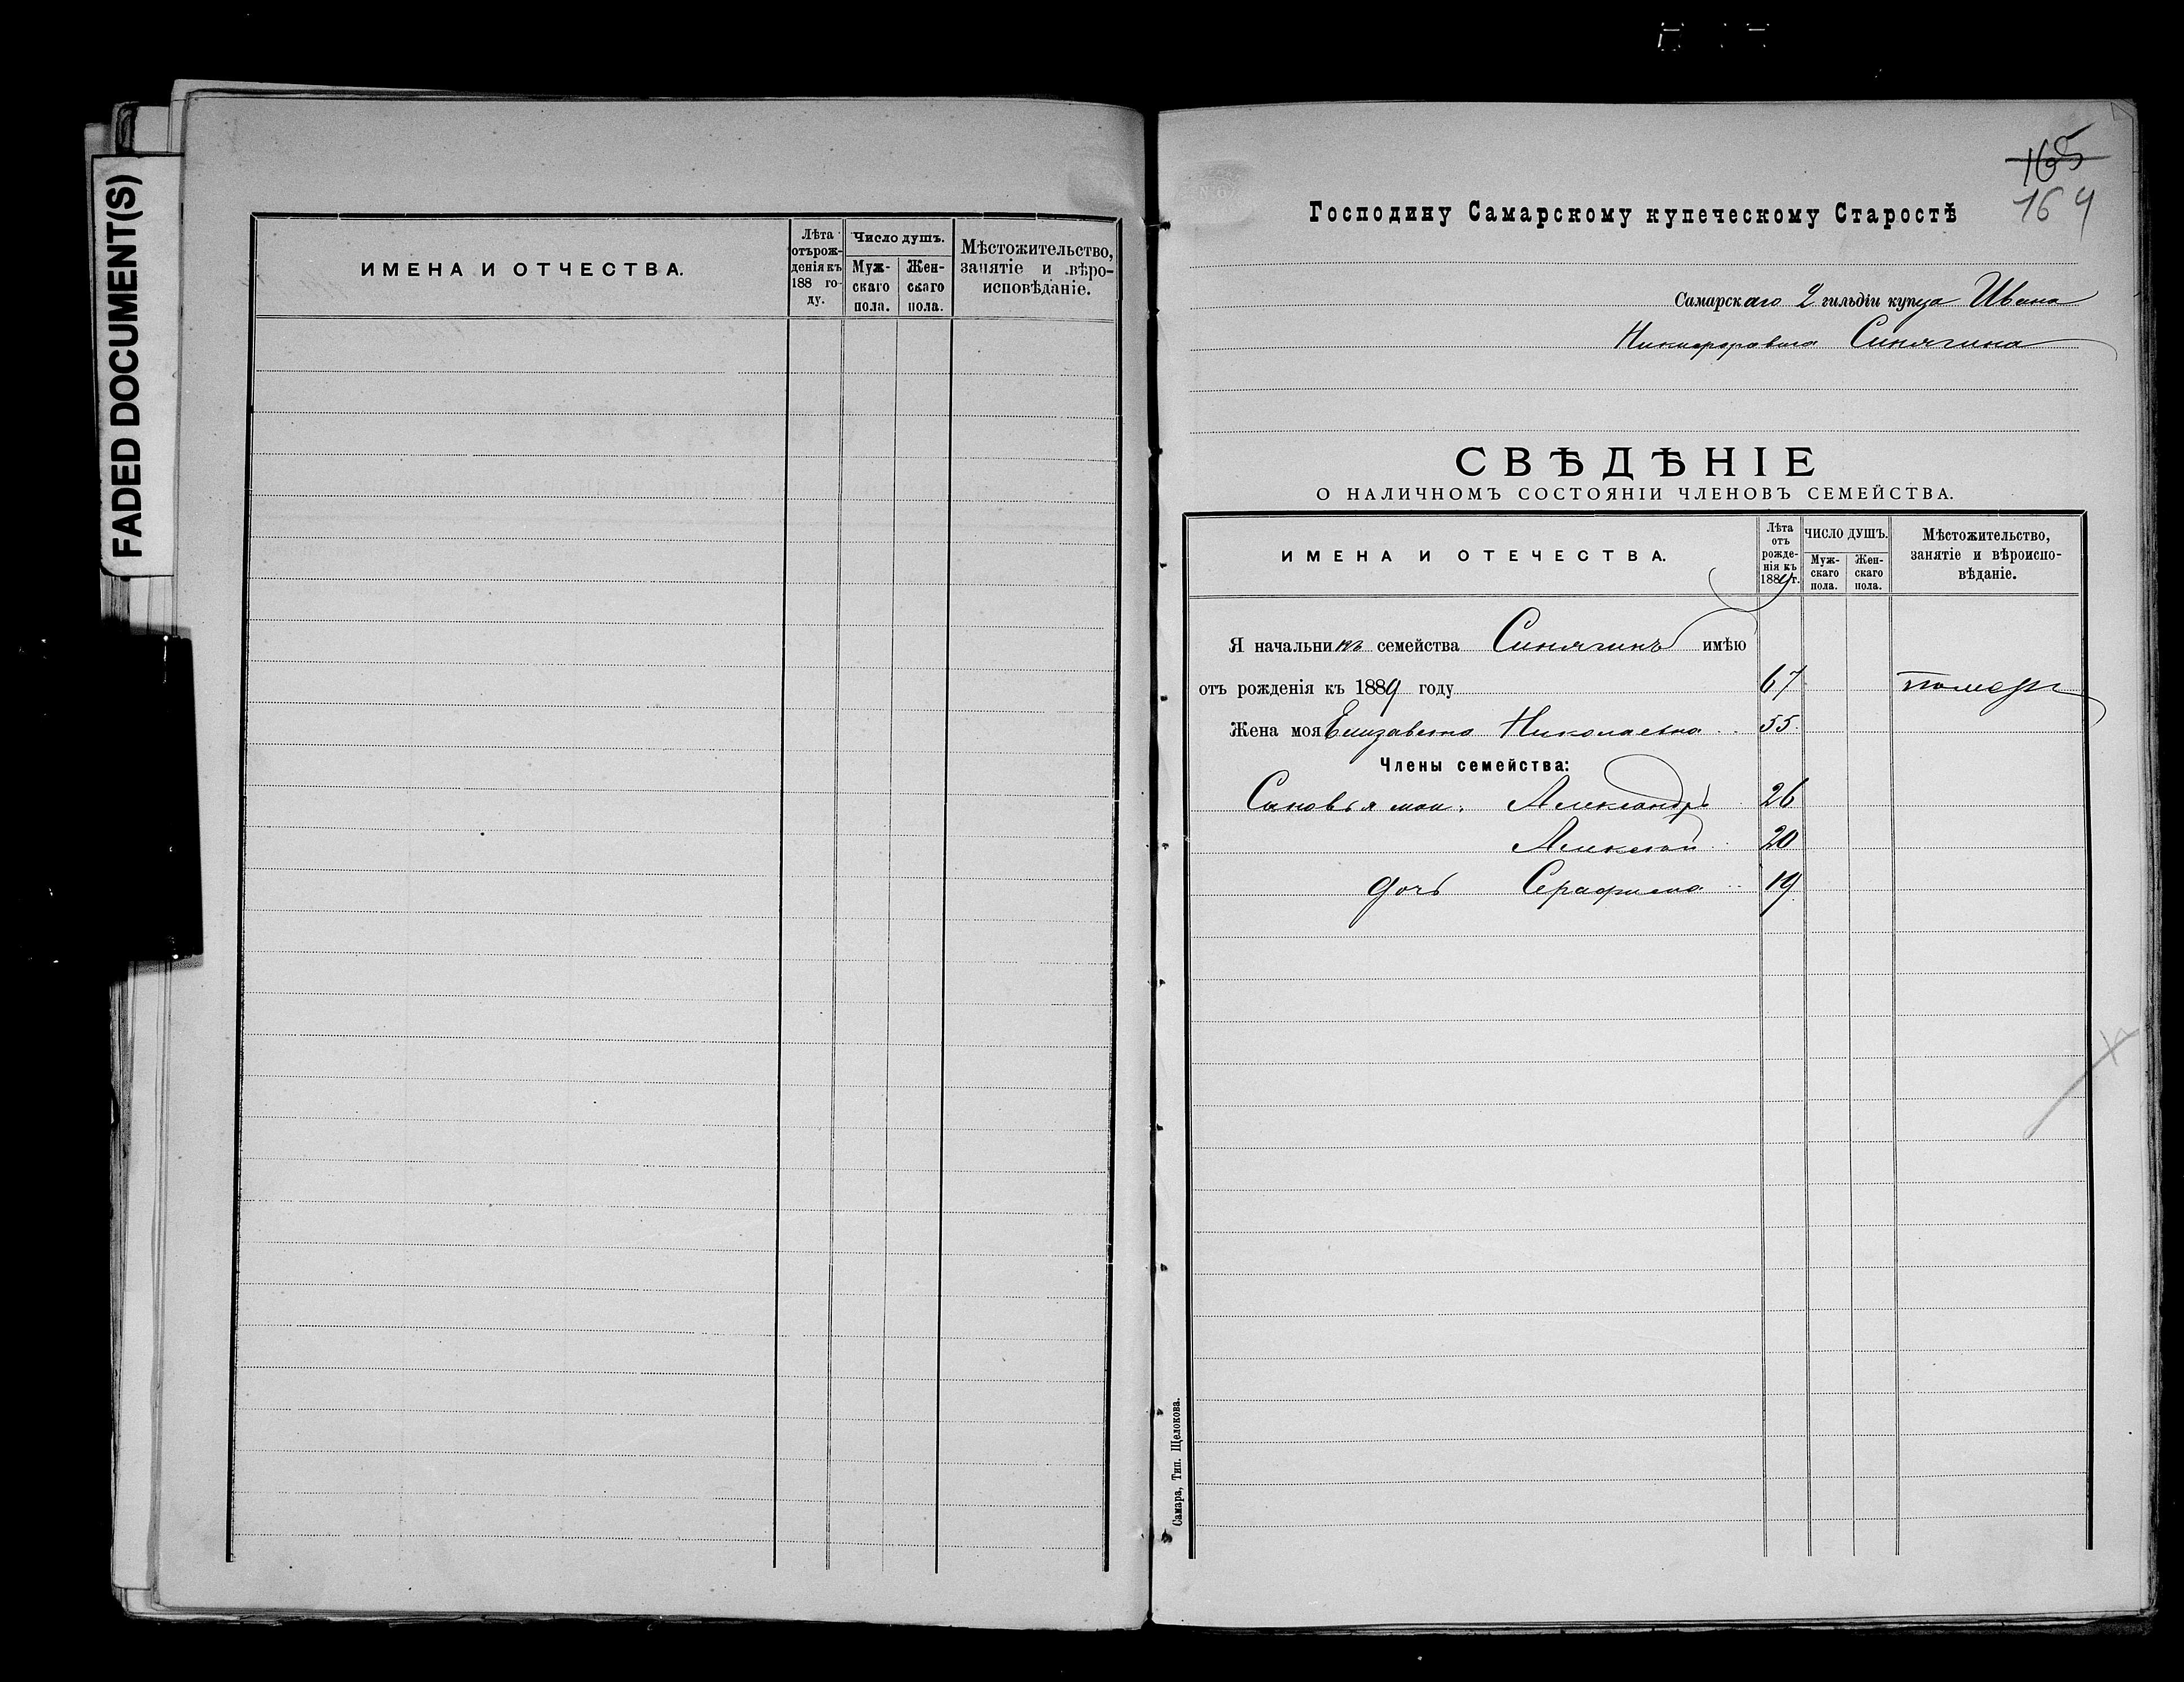 FADED DOCUMENT(S)
ИМЕНА И ОТЧЕСТВА.
Лѣта
отърож-
деніякъ
188 го-
ду.
Число душъ.
Муж-
скаго
пола.
Жен-
скаго
пола.
Мѣстожительство,
занятіе и вѣро-
исповѣданіе.
165
164
Господину Самарскому купеческому Старостѣ
Самарскаго 2 гильдіи купца Ивана
Никифоровича Синягина
СВѢДѢНІЕ
О НАЛИЧНОМЪ СОСТОЯНІИ ЧЛЕНОВЪ СЕМЕЙСТВА.
ИМЕНА И ОТЕЧЕСТВА.
Лѣта
отъ
рожде-
нія къ
1889 г.
ЧИСЛО ДУШЪ.
Муж-
скаго
пола.
Жен-
скаго
пола.
Мѣстожительство,
занятіе и вѣроиспо-
вѣданіе.
Я начальникъ семейства Синягинъ имѣю
отъ рожденія къ 1889 году 67
Жена моя Елизавета Николаевна 55.
Члены семейства:
Сыновья мои. Александръ 26
Алексѣй 20
дочь Серафима 19.
Самара, Тип. Щелокова.